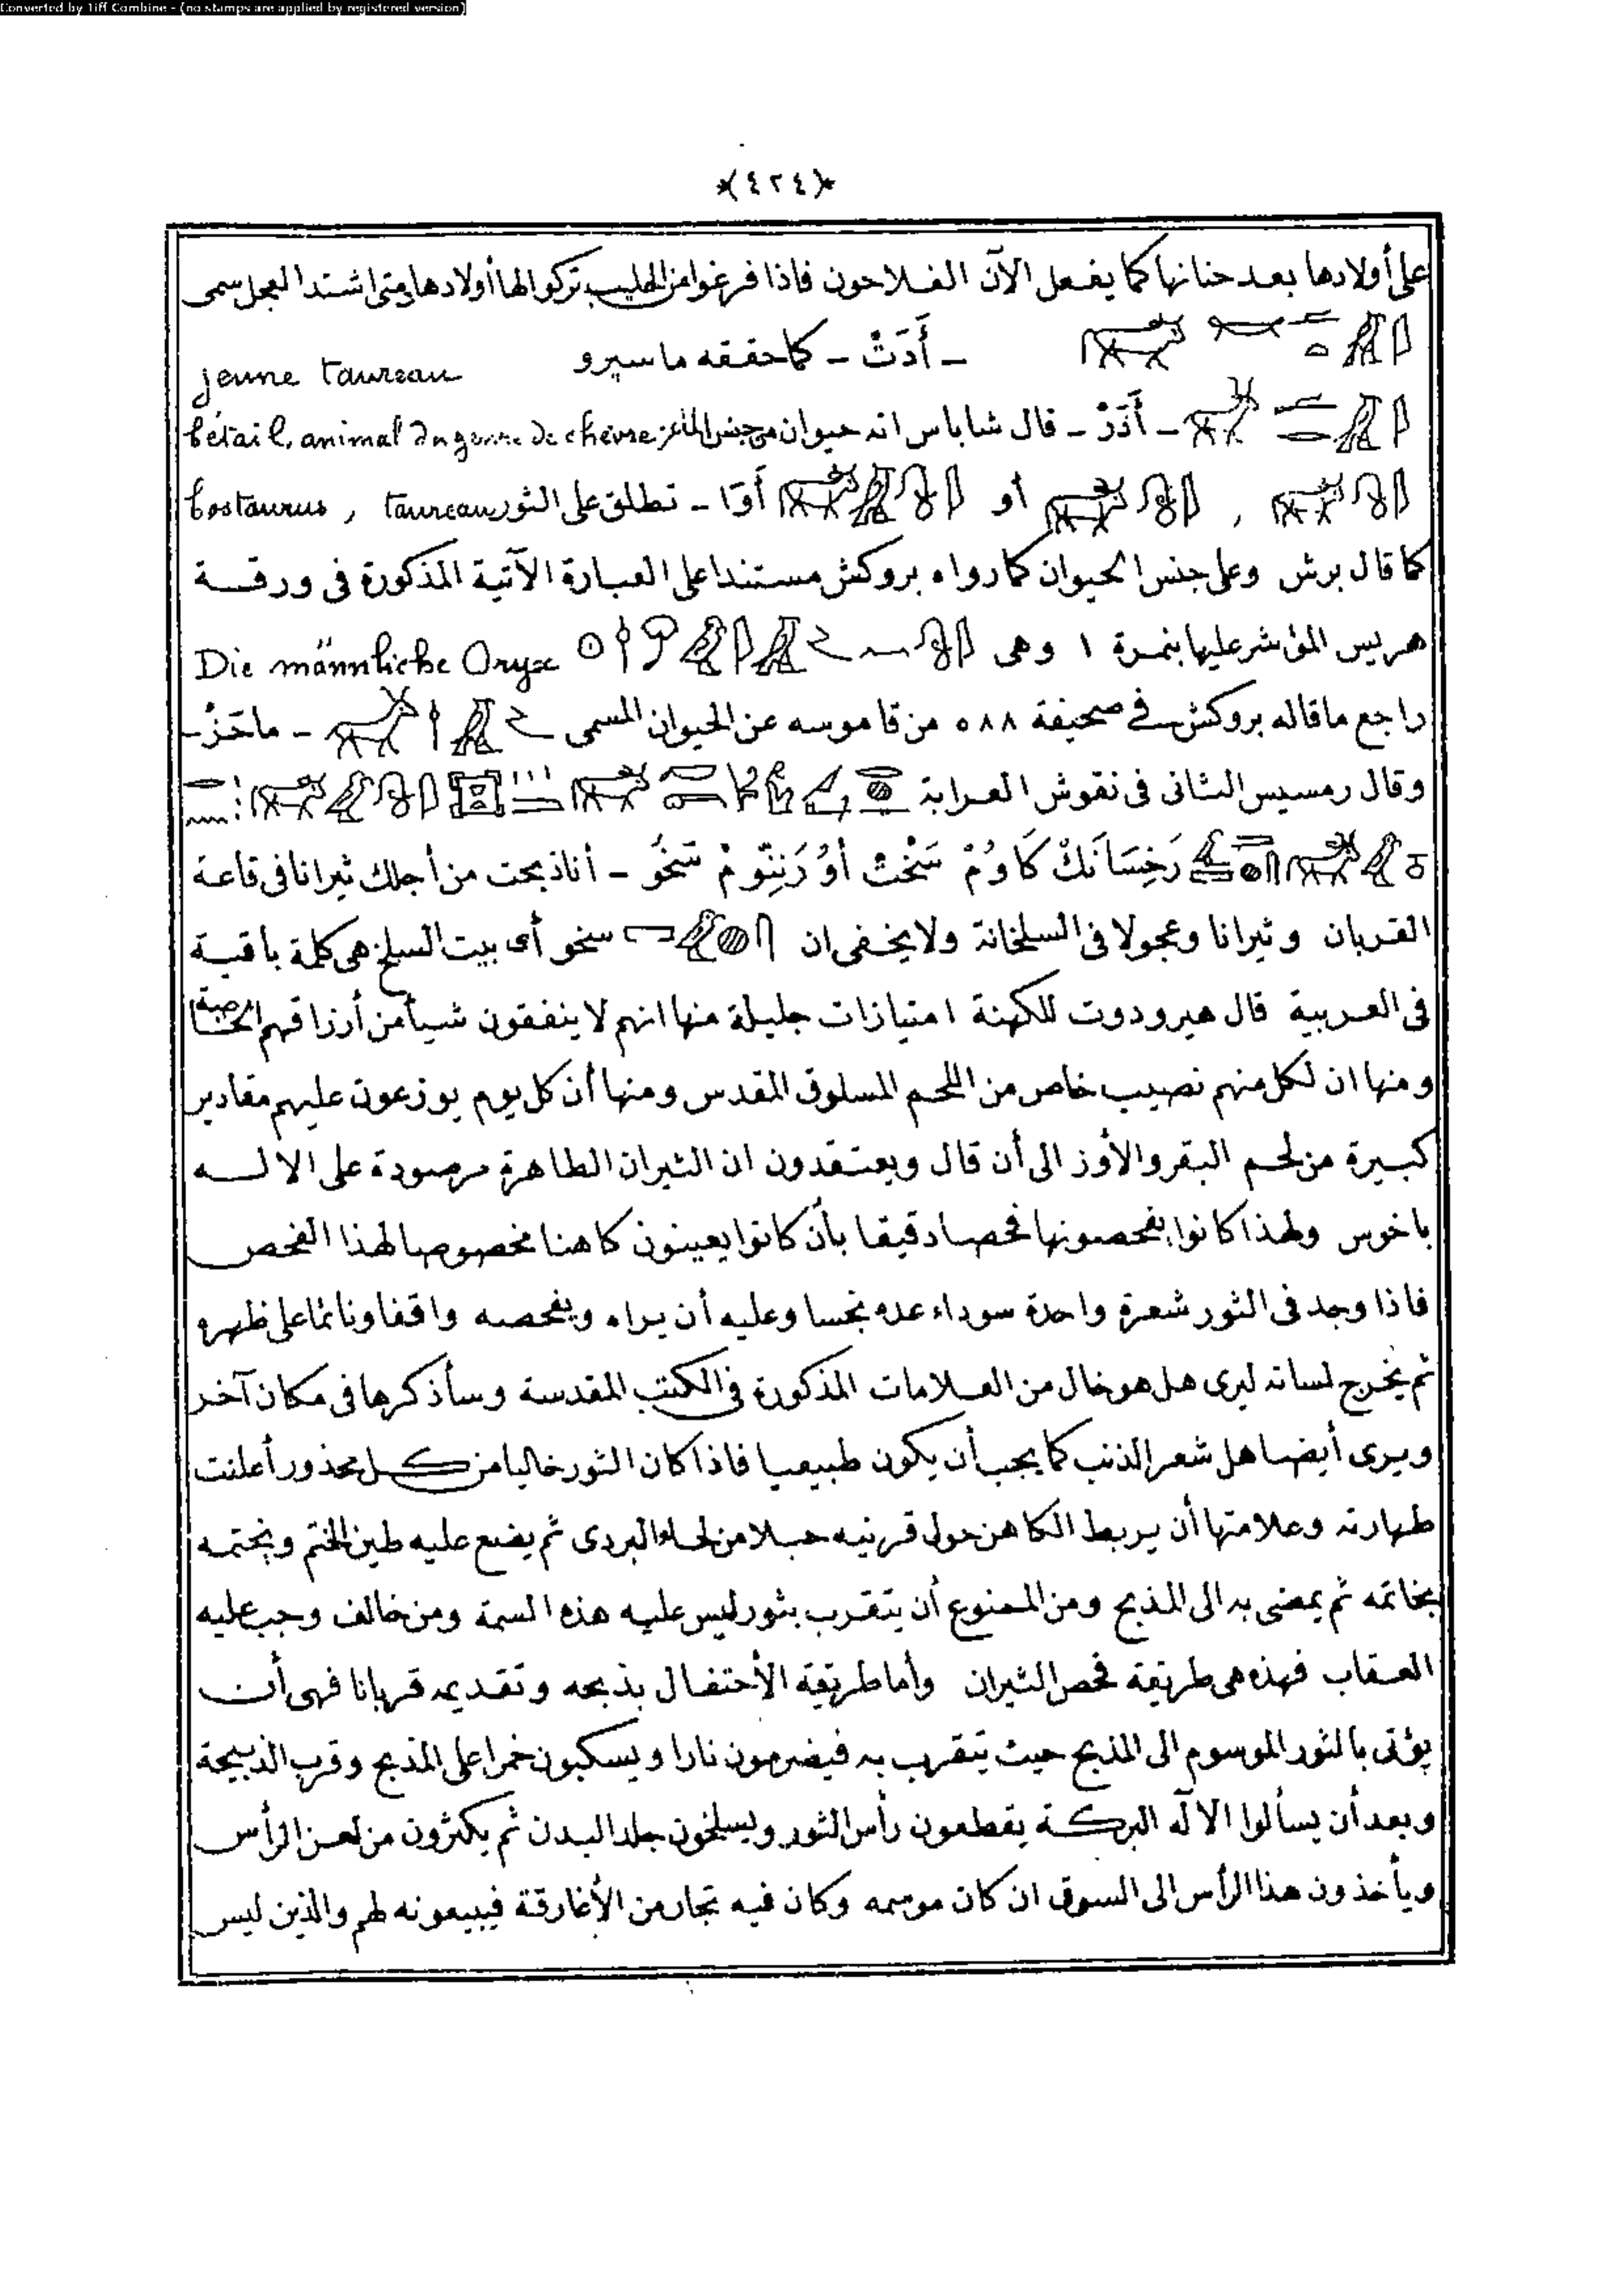 Converted by Tiff Combine - (no stamps are applied by registered version)
*(٤٢٤)*
على أولادها بعد حنانها كما يفعل الآن الفلاحون فاذا فرغوا من الحليب تركوا لها أولادها ومتى اشتد العجل سمى
ـ أَدَتْ ـ كما حققه ماسپرو jeune taureau
ـ أَدَرْ ـ قال شاباس انه حيوان من جنس الماعز bétail, animal du genre de chèvre
, أو أَوَا ـ تطلق على الثور bostaurus, taureau
كما قال برش وعلى جنس الحيوان كما رواه بروكش مستندا على العبارة الآتية المذكورة فى ورقة
هريس المؤشر عليها بنمرة ١ وهى Die männliche Oryx
راجع ماقاله بروكش فى صحيفة ٥٨٨ من قاموسه عن الحيوان المسمى ـ ماحَزْ ـ
وقال رمسيس الثانى فى نقوش العرابة
رَخِسَانَكْ كَاوُمْ سَخْتْ أوُ رَنِنُّومْ سَخُو ـ أنا ذبحت من أجلك ثيرانا فى قاعة
القربان وثيرانا وعجولا فى السلخانة ولا يخفى ان سخو أى بيت السلخ هى كلمة باقية
فى العربية قال هيرودوت للكهنة امتيازات جليلة منها انهم لا ينفقون شيأ من أرزاقهم الخاصة
ومنها ان لكل منهم نصيب خاص من اللحم المسلوق المقدس ومنها أن كل يوم يوزعون عليهم مقادير
كبيرة من لحم البقر والأوز الى أن قال ويعتقدون ان الثيران الطاهرة مرصودة على الاله
باخوس ولهذا كانوا يفحصونها فحصا دقيقا بأن كانوا يعينون كاهنا مخصوصا لهذا الفحص
فاذا وجد فى الثور شعرة واحدة سوداء عده نجسا وعليه أن يراه ويفحصه واقفا ونائما على ظهره
ثم يخرج لسانه ليرى هل هو خال من العلامات المذكورة فى الكتب المقدسة وسأذكرها فى مكان آخر
ويرى أيضا هل شعر الذنب كما يجب أن يكون طبيعيا فاذا كان الثور خاليا من كل محذور أعلنت
طهارته وعلامتها أن يربط الكاهن حول قرنيه حبلا من لحاء البردى ثم يضع عليه طين الختم ويختمه
بخاتمه ثم يمضى به الى المذبح ومن الممنوع أن يتقرب بثور ليس عليه هذه السمة ومن خالف وجب عليه
العقاب فهذه هى طريقة فحص الثيران وأما طريقة الأحتفال بذبحه وتقديمه قربانا فهى أن
يؤتى بالثور الموسوم الى المذبح حيث يتقرب به فيضرمون نارا ويسكبون خمرا على المذبح وقرب الذبيحة
وبعد أن يسألوا الاله البركة يقطعون رأس الثور ويسلخون جلد البدن ثم يكثرون من لعن الرأس
ويأخذون هذا الرأس الى السوق ان كان موسمه وكان فيه تجار من الأغارقة فيبيعونه لهم والذين ليس